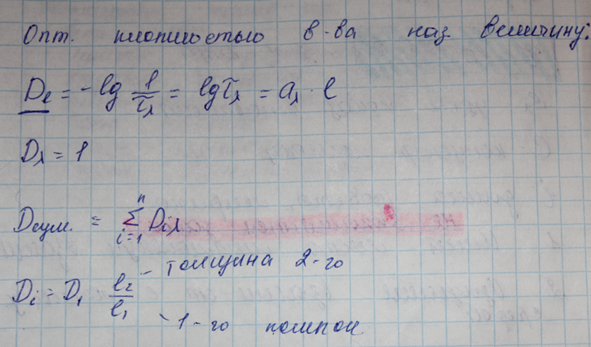 Опт. плотностью в-ва наз величину:
D_λ = -lg 1/τ_λ = lg τ_λ = a_λ · l
D_λ = 1
D сум. = Σ_{i=1}^{n} D_{iλ}
D_i = D_1 l_2/l_1 - толщина 2-го
- 1-го